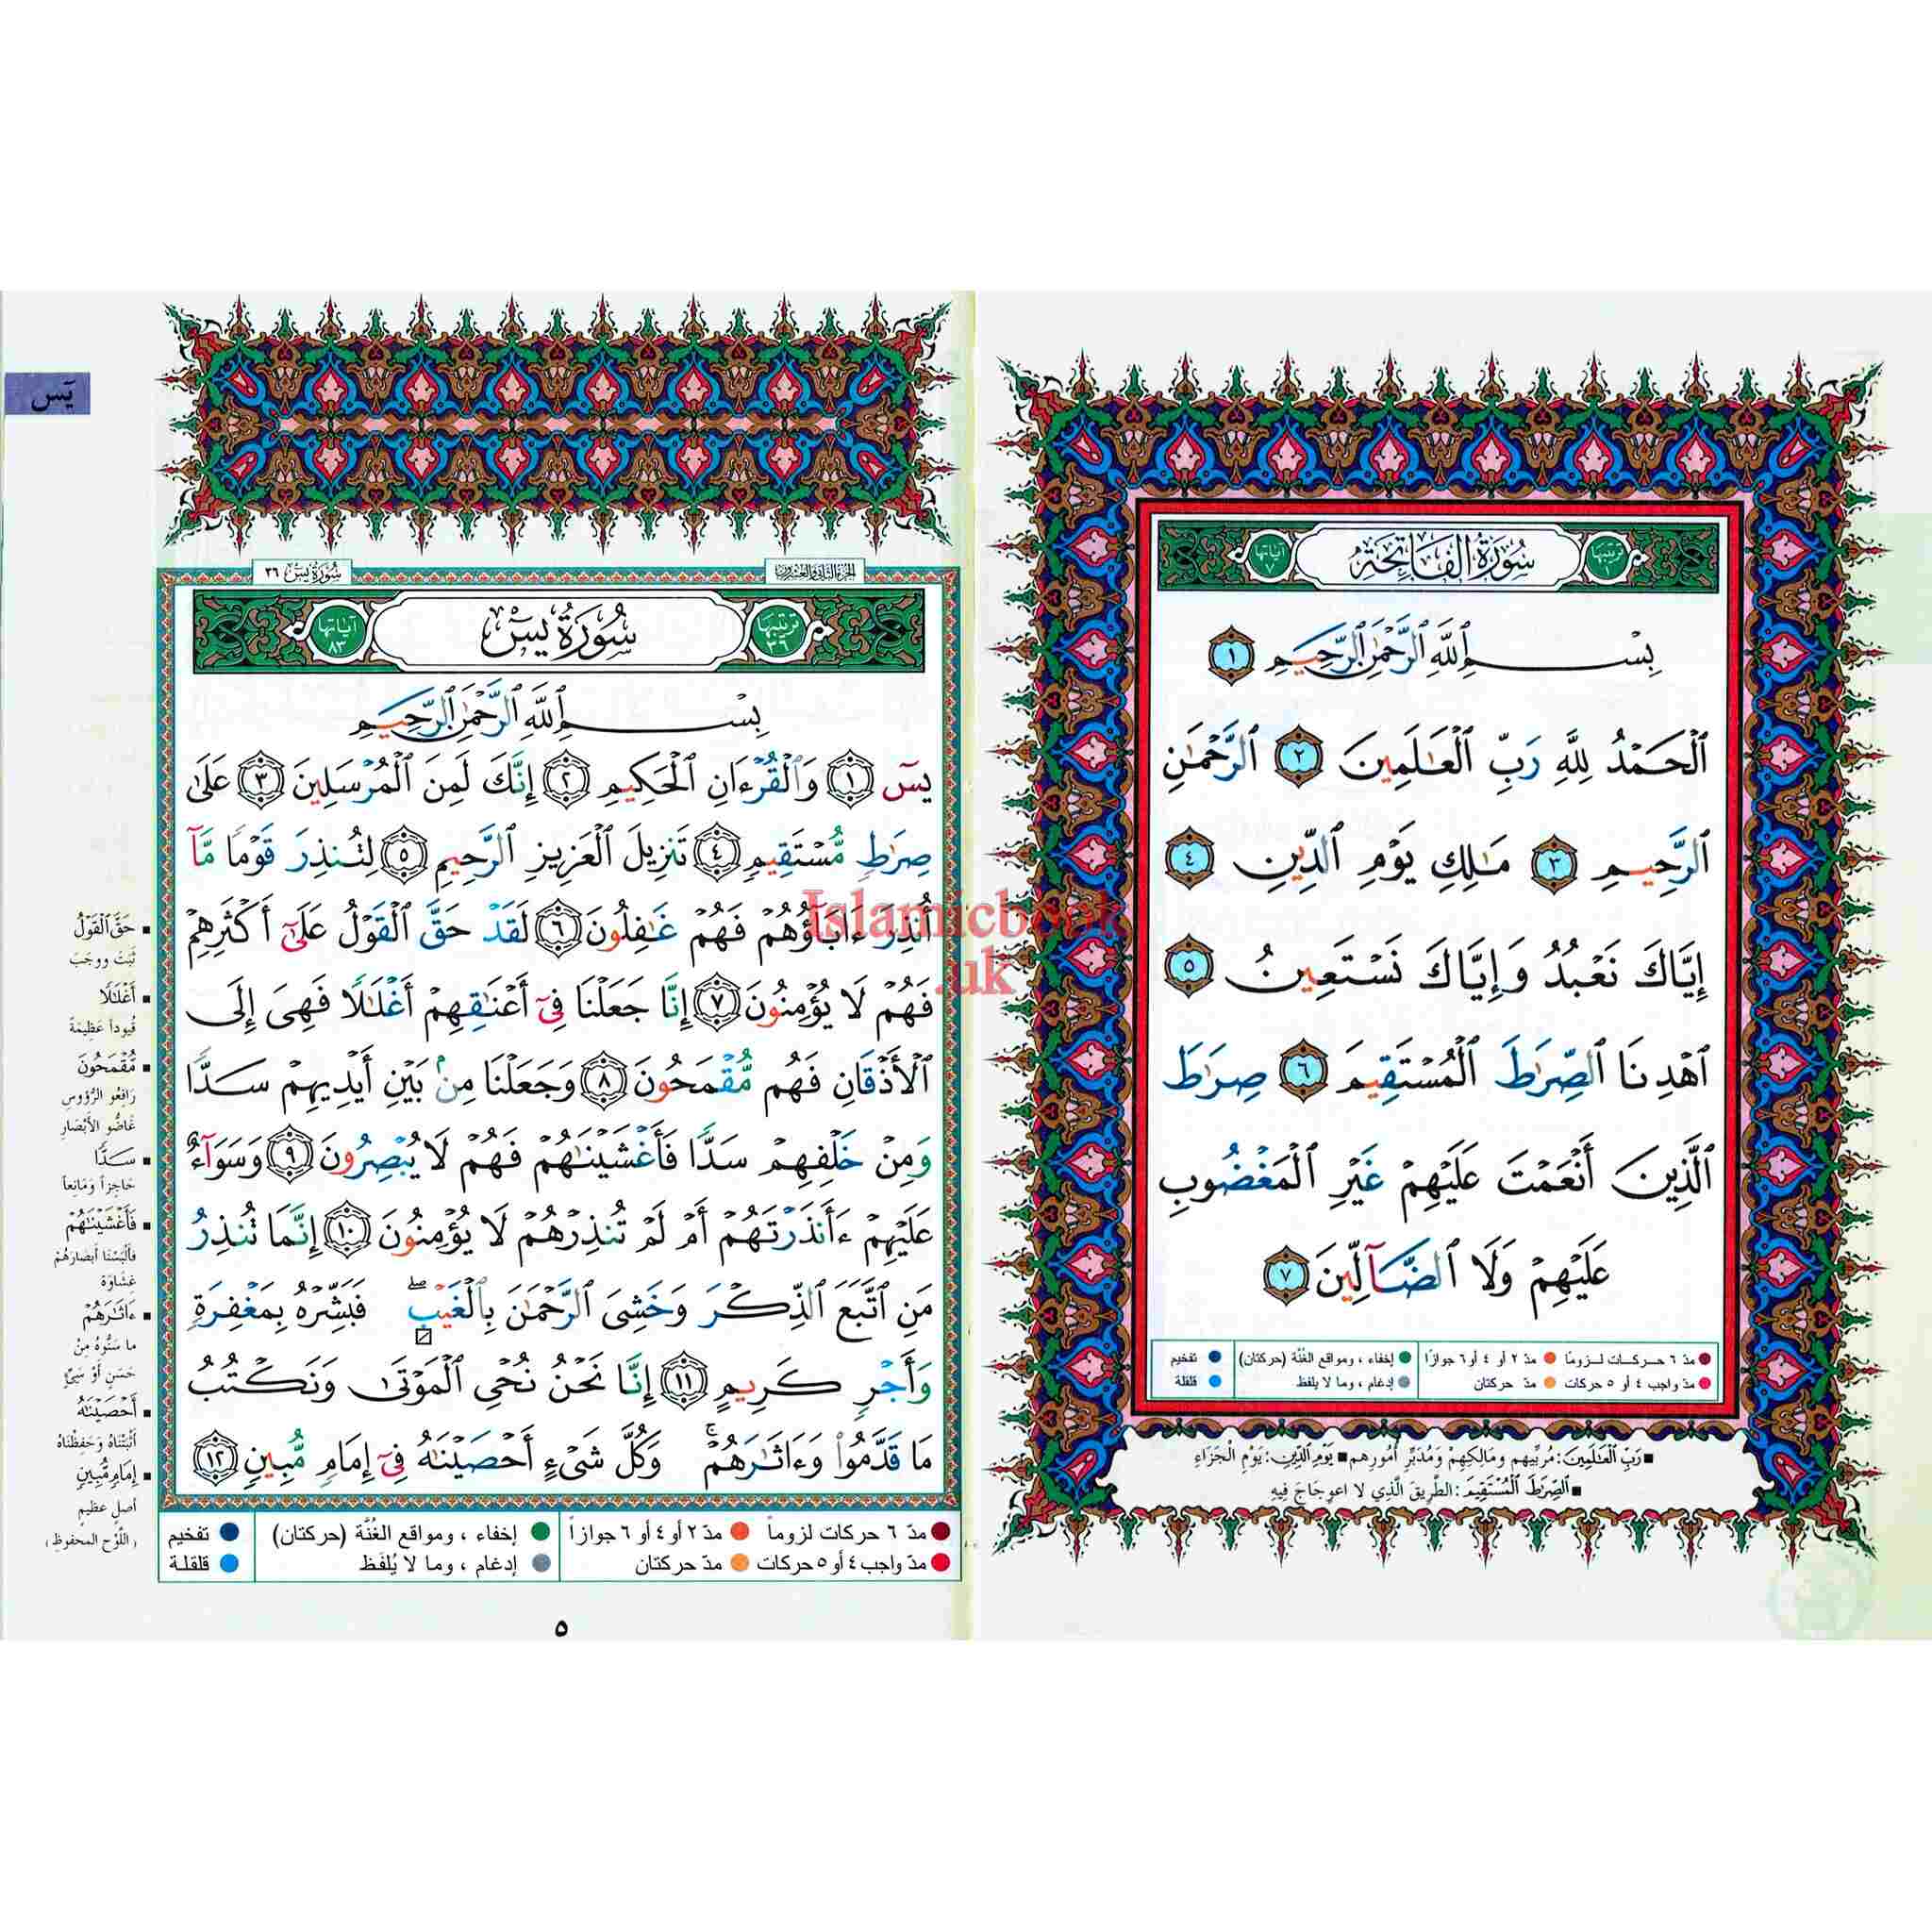 سُورَةُ الفَاتِحَةِ
ترتيبها ١
آياتها ٧
بِسْمِ ٱللَّهِ ٱلرَّحْمَٰنِ ٱلرَّحِيمِ ١
ٱلْحَمْدُ لِلَّهِ رَبِّ ٱلْعَٰلَمِينَ ٢ ٱلرَّحْمَٰنِ
ٱلرَّحِيمِ ٣ مَٰلِكِ يَوْمِ ٱلدِّينِ ٤
إِيَّاكَ نَعْبُدُ وَإِيَّاكَ نَسْتَعِينُ ٥
ٱهْدِنَا ٱلصِّرَٰطَ ٱلْمُسْتَقِيمَ ٦ صِرَٰطَ
ٱلَّذِينَ أَنْعَمْتَ عَلَيْهِمْ غَيْرِ ٱلْمَغْضُوبِ
عَلَيْهِمْ وَلَا ٱلضَّآلِّينَ ٧
مدّ ٦ حركات لزوماً مدّ ٢ أو ٤ أو ٦ جوازاً إخفاء ، ومواقع الغُنَّة (حركتان) تفخيم
مدّ واجب ٤ أو ٥ حركات مدّ حركتان إدغام ، وما لا يلفظ قلقلة
رَبِّ ٱلْعَٰلَمِينَ: مُرَبِّيهِم وَمَالِكِهِمْ وَمُدَبِّرِ أُمُورِهِم يَوْمِ ٱلدِّينِ: يَوْمِ الْجَزَاءِ
ٱلصِّرَٰطَ ٱلْمُسْتَقِيمَ: الطَّرِيقَ الَّذِي لا اعْوِجَاجَ فِيهِ
يسٓ
الجزء الثاني والعشرون
سُورَةُ يسٓ ٣٦
سُورَةُ يسٓ
ترتيبها ٣٦
آياتها ٨٣
بِسْمِ ٱللَّهِ ٱلرَّحْمَٰنِ ٱلرَّحِيمِ
يسٓ ١ وَٱلْقُرْءَانِ ٱلْحَكِيمِ ٢ إِنَّكَ لَمِنَ ٱلْمُرْسَلِينَ ٣ عَلَىٰ
صِرَٰطٍ مُّسْتَقِيمٍ ٤ تَنزِيلَ ٱلْعَزِيزِ ٱلرَّحِيمِ ٥ لِتُنذِرَ قَوْمًا مَّآ
أُنذِرَ ءَابَآؤُهُمْ فَهُمْ غَٰفِلُونَ ٦ لَقَدْ حَقَّ ٱلْقَوْلُ عَلَىٰٓ أَكْثَرِهِمْ
فَهُمْ لَا يُؤْمِنُونَ ٧ إِنَّا جَعَلْنَا فِىٓ أَعْنَٰقِهِمْ أَغْلَٰلًا فَهِىَ إِلَى
ٱلْأَذْقَانِ فَهُم مُّقْمَحُونَ ٨ وَجَعَلْنَا مِنۢ بَيْنِ أَيْدِيهِمْ سَدًّا
وَمِنْ خَلْفِهِمْ سَدًّا فَأَغْشَيْنَٰهُمْ فَهُمْ لَا يُبْصِرُونَ ٩ وَسَوَآءٌ
عَلَيْهِمْ ءَأَنذَرْتَهُمْ أَمْ لَمْ تُنذِرْهُمْ لَا يُؤْمِنُونَ ١٠ إِنَّمَا تُنذِرُ
مَنِ ٱتَّبَعَ ٱلذِّكْرَ وَخَشِىَ ٱلرَّحْمَٰنَ بِٱلْغَيْبِ ۖ فَبَشِّرْهُ بِمَغْفِرَةٍ
وَأَجْرٍ كَرِيمٍ ١١ إِنَّا نَحْنُ نُحْىِ ٱلْمَوْتَىٰ وَنَكْتُبُ
مَا قَدَّمُوا۟ وَءَاثَٰرَهُمْ ۚ وَكُلَّ شَىْءٍ أَحْصَيْنَٰهُ فِىٓ إِمَامٍ مُّبِينٍ ١٢
مدّ ٦ حركات لزوماً مدّ ٢ أو ٤ أو ٦ جوازاً إخفاء ، ومواقع الغُنَّة (حركتان) تفخيم
مدّ واجب ٤ أو ٥ حركات مدّ حركتان إدغام ، وما لا يُلفَظ قلقلة
حَقَّ ٱلْقَوْلُ
ثَبَتَ ووجَبَ
أَغْلَٰلًا
قُيوداً عَظِيمَةً
مُّقْمَحُونَ
رَافِعُو الرُّؤُوسِ
غَاضُّو الأَبْصَارِ
سَدًّا
حَاجِزاً وَمَانِعاً
فَأَغْشَيْنَٰهُمْ
فأَلْبَسْنَا أَبصَارَهُمْ
غِشَاوَة
ءَاثَٰرَهُمْ
ما سَنُّوهُ مِنْ
حَسَنٍ أَوْ سَيِّئٍ
أَحْصَيْنَٰهُ
أَثْبَتْنَاهُ وَحَفِظْنَاهُ
إِمَامٍ مُّبِينٍ
أصلٍ عظيمٍ
(اللَّوْحِ المحفوظِ)
٥
Islamicbook
.uk